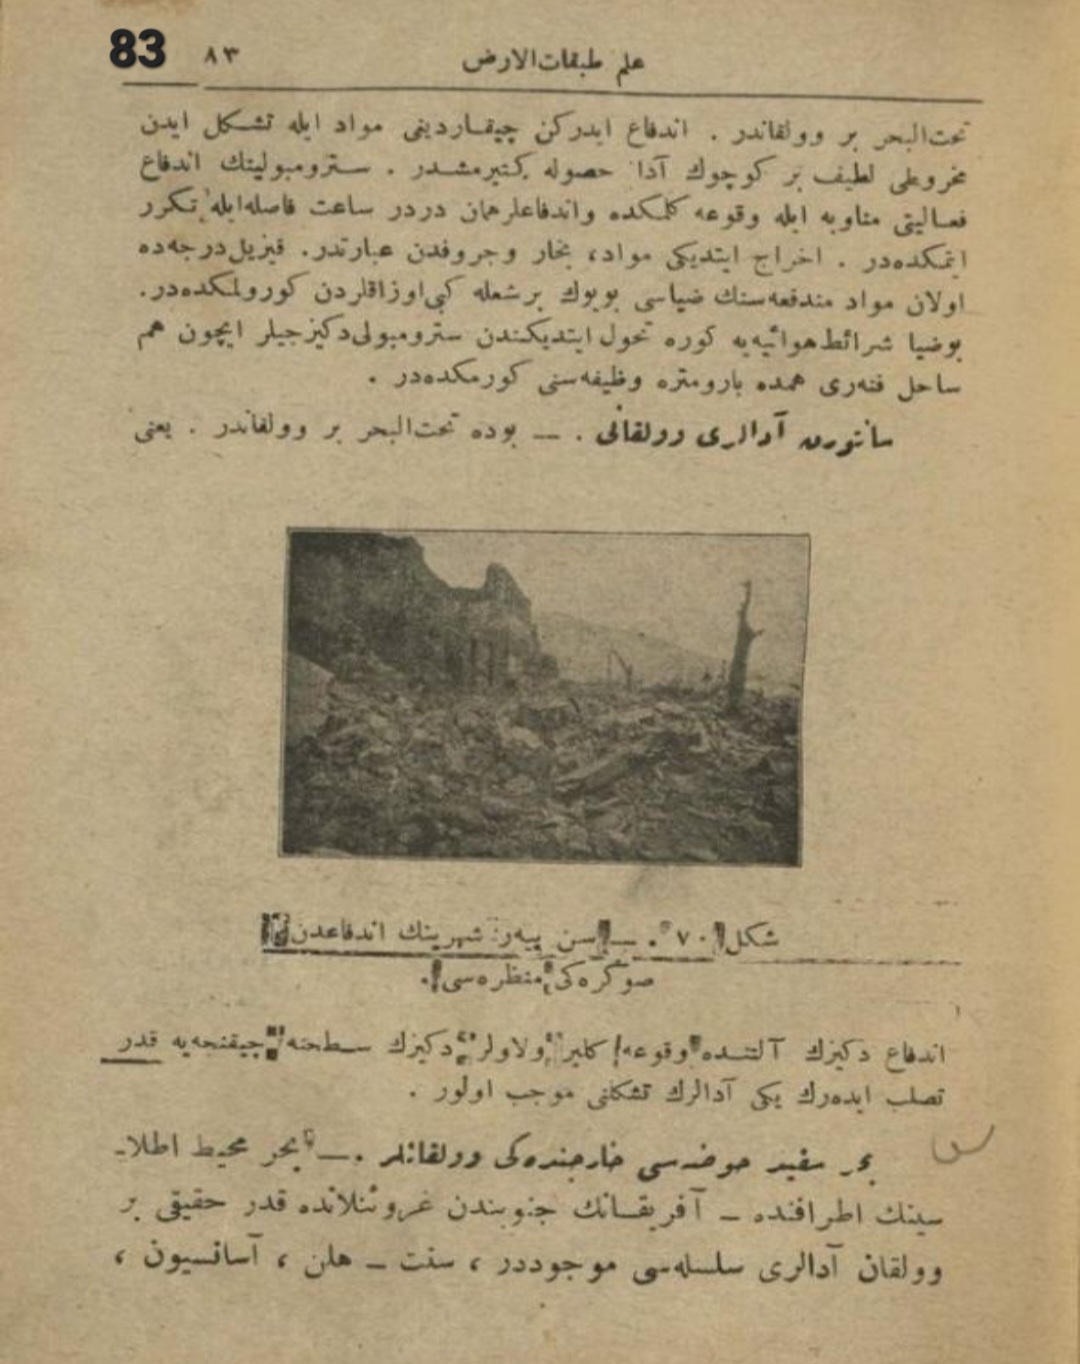 83 ٨٣ علم طبقات‌الارض
تحت‌البحر بر وولقاندر . اندفاع ایدركن چیقاردیغی مواد ایله تشكل ایدن
مخروطی لطیف بر كوچوك آدا حصوله كتیرمشدر . سترومبولینك اندفاع
فعالیتی مناوبه ایله وقوعه كلمكده واندفاعلرهمان دردر ساعت فاصله‌ایله تكرر
ایتمكده‌در . اخراج ایتدیكی مواد، بخار وجروفدن عبارتدر. قیزیل‌درجه‌ده
اولان مواد مندفعه‌سنك ضیاسی بویوك برشعله كبی‌اوزاقلردن كورولمكده‌در.
بوضیا شرائط‌هوائیه‌یه كوره تحول‌ایتدیكندن سترومبولی‌دكیزجیلر ایچون هم
ساحل فنه‌ری همده بارومتره وظیفه‌سنی كورمكده‌در .
سانتورن آدالری وولقانی . — بوده تحت‌البحر بر وولقاندر . یعنی
شكل ٧٠ . — سن پیه‌ر شهرینك اندفاعدن
صوكره‌كی منظره‌سی .
اندفاع دكیزك آلتنده وقوعه كلیر ولاولر دكیزك سطحنه چیقنجه‌یه قدر
تصلب ایده‌رك یكی آدالرك تشكلنی موجب اولور .
بحر سفید حوضه‌سی خارجنده‌كی وولقانلر . — بحر محیط اطلا-
سینك اطرافنده — آفریقانك جنوبندن غروئنلانده قدر حقیقی بر
وولقان آدالری سلسله‌سی موجوددر ، سنت — هلن ، آسانسیون ،